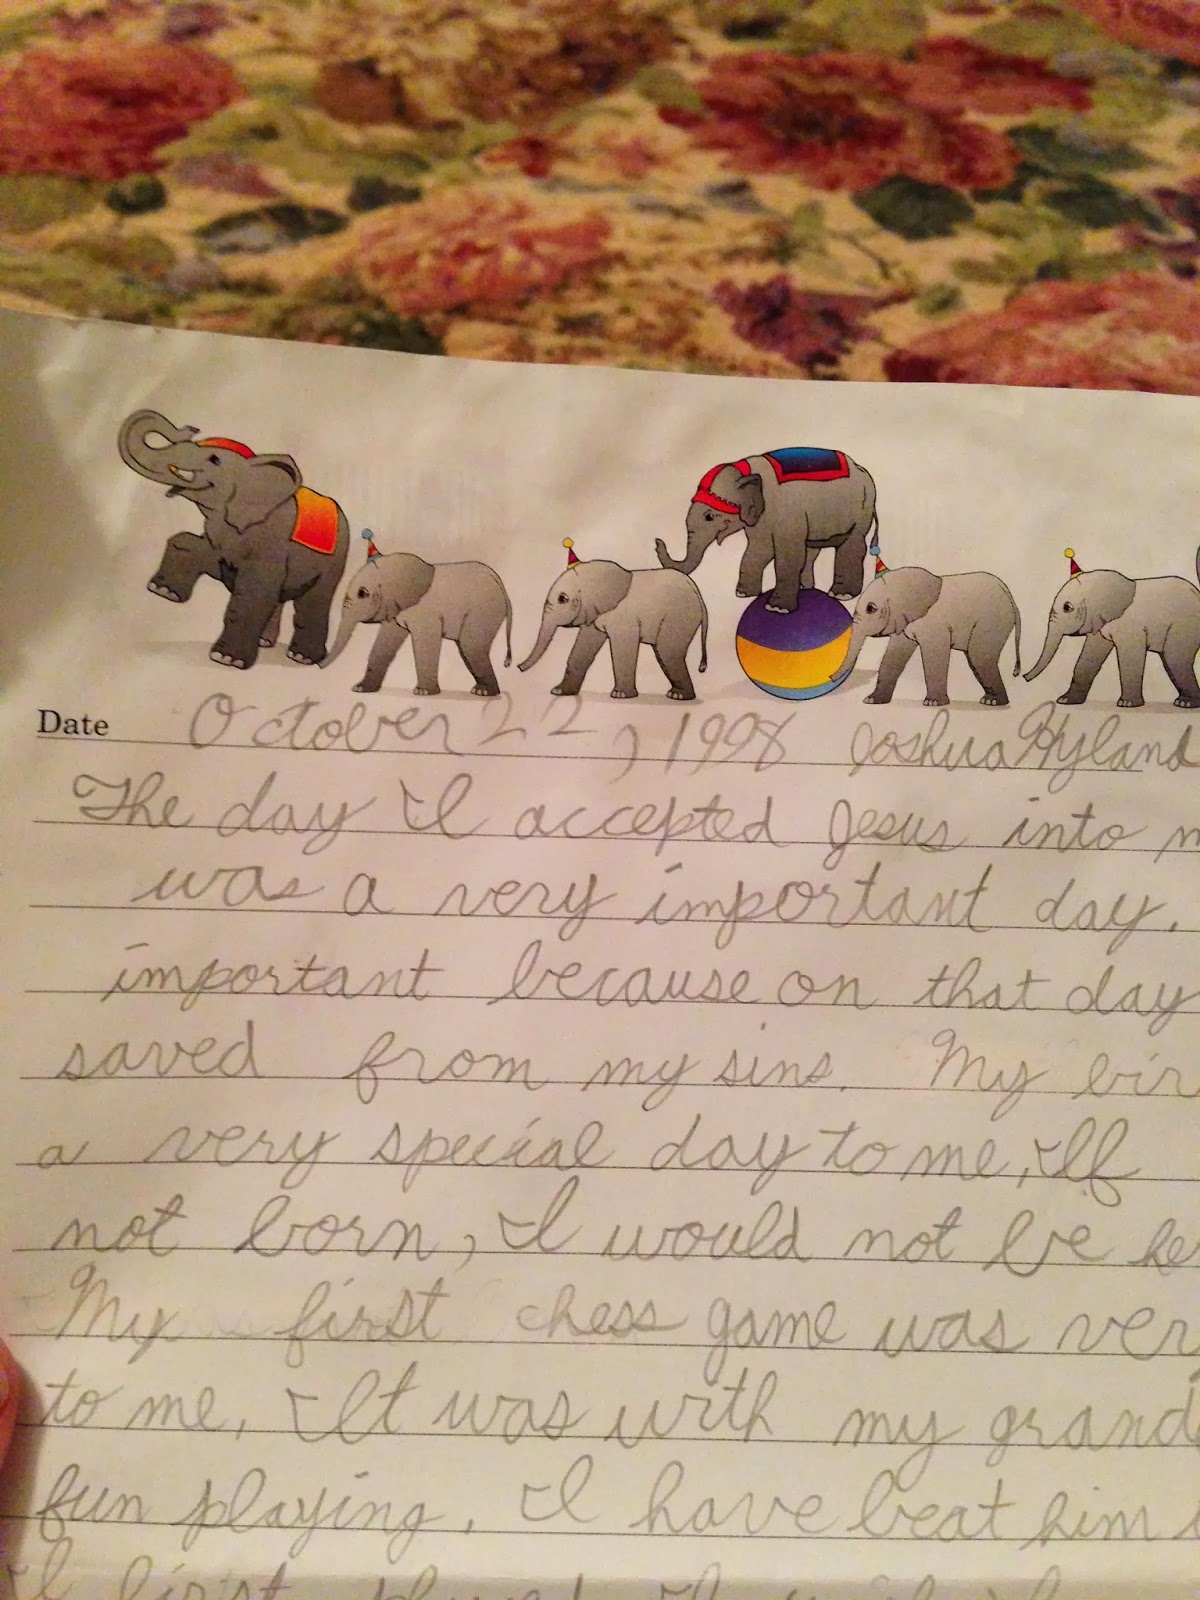 Date October 22, 1998 Joshua Hyland
The day I accepted Jesus into
was a very important day.
important because on that day
saved from my sins. My
a very special day to me, If
not born, I would not be
My first chess game was
to me, It was with my
fun playing. I have beat him
I first